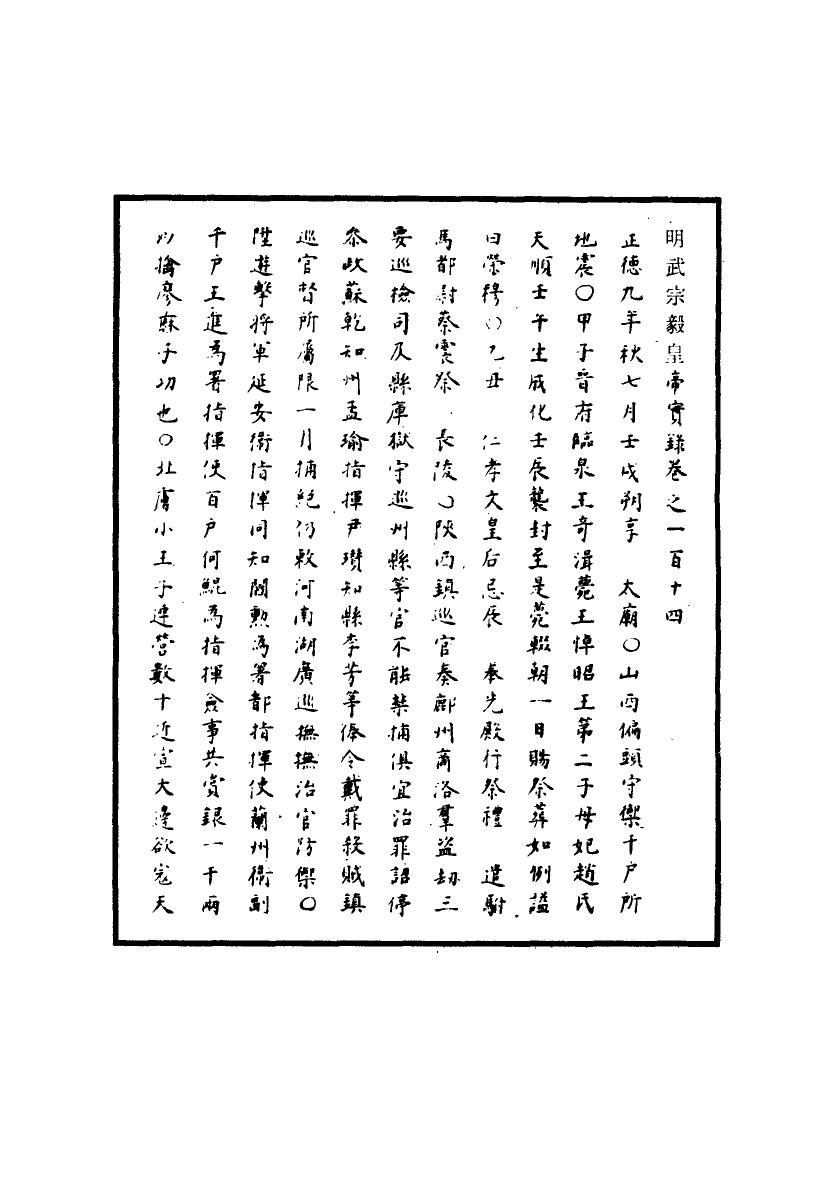 明武宗毅皇帝實錄卷之一百十四
正德九年秋七月壬戌朔享　太廟〇山西偏頭守禦千戶所
地震〇甲子晉府臨泉王奇湒薨王悼昭王第二子母妃趙氏
天順壬午生成化壬辰襲封至是薨輟朝一日賜祭葬如例謚
曰榮穆〇乙丑　仁孝文皇后忌辰　奉先殿行祭禮　遣駙
馬都尉蔡震祭　長陵〇陝西鎮巡官奏鄜州商洛羣盜劫三
要巡檢司及縣庫獄守巡州縣等官不能禁捕俱宜治罪詔停
叅政蘇乾知州孟瑜指揮尹瓚知縣李芳等俸令戴罪殺賊鎮
巡官督所屬限一月捕絕仍敕河南湖廣巡撫撫治官防禦〇
陞遊擊將軍延安衛指揮同知閻勲為署都指揮使蘭州衛副
千戶王進為署指揮使百戶何鯤為指揮僉事共賞銀一千兩
以擒廖麻子功也〇北虜小王子連營數十近宣大邊欲寇天